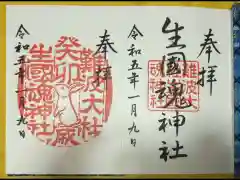 奉拝
生國魂神社
難波大社
令和五年一月九日
奉拝
難波大社
癸卯歳
生國魂神社
令和五年一月九日